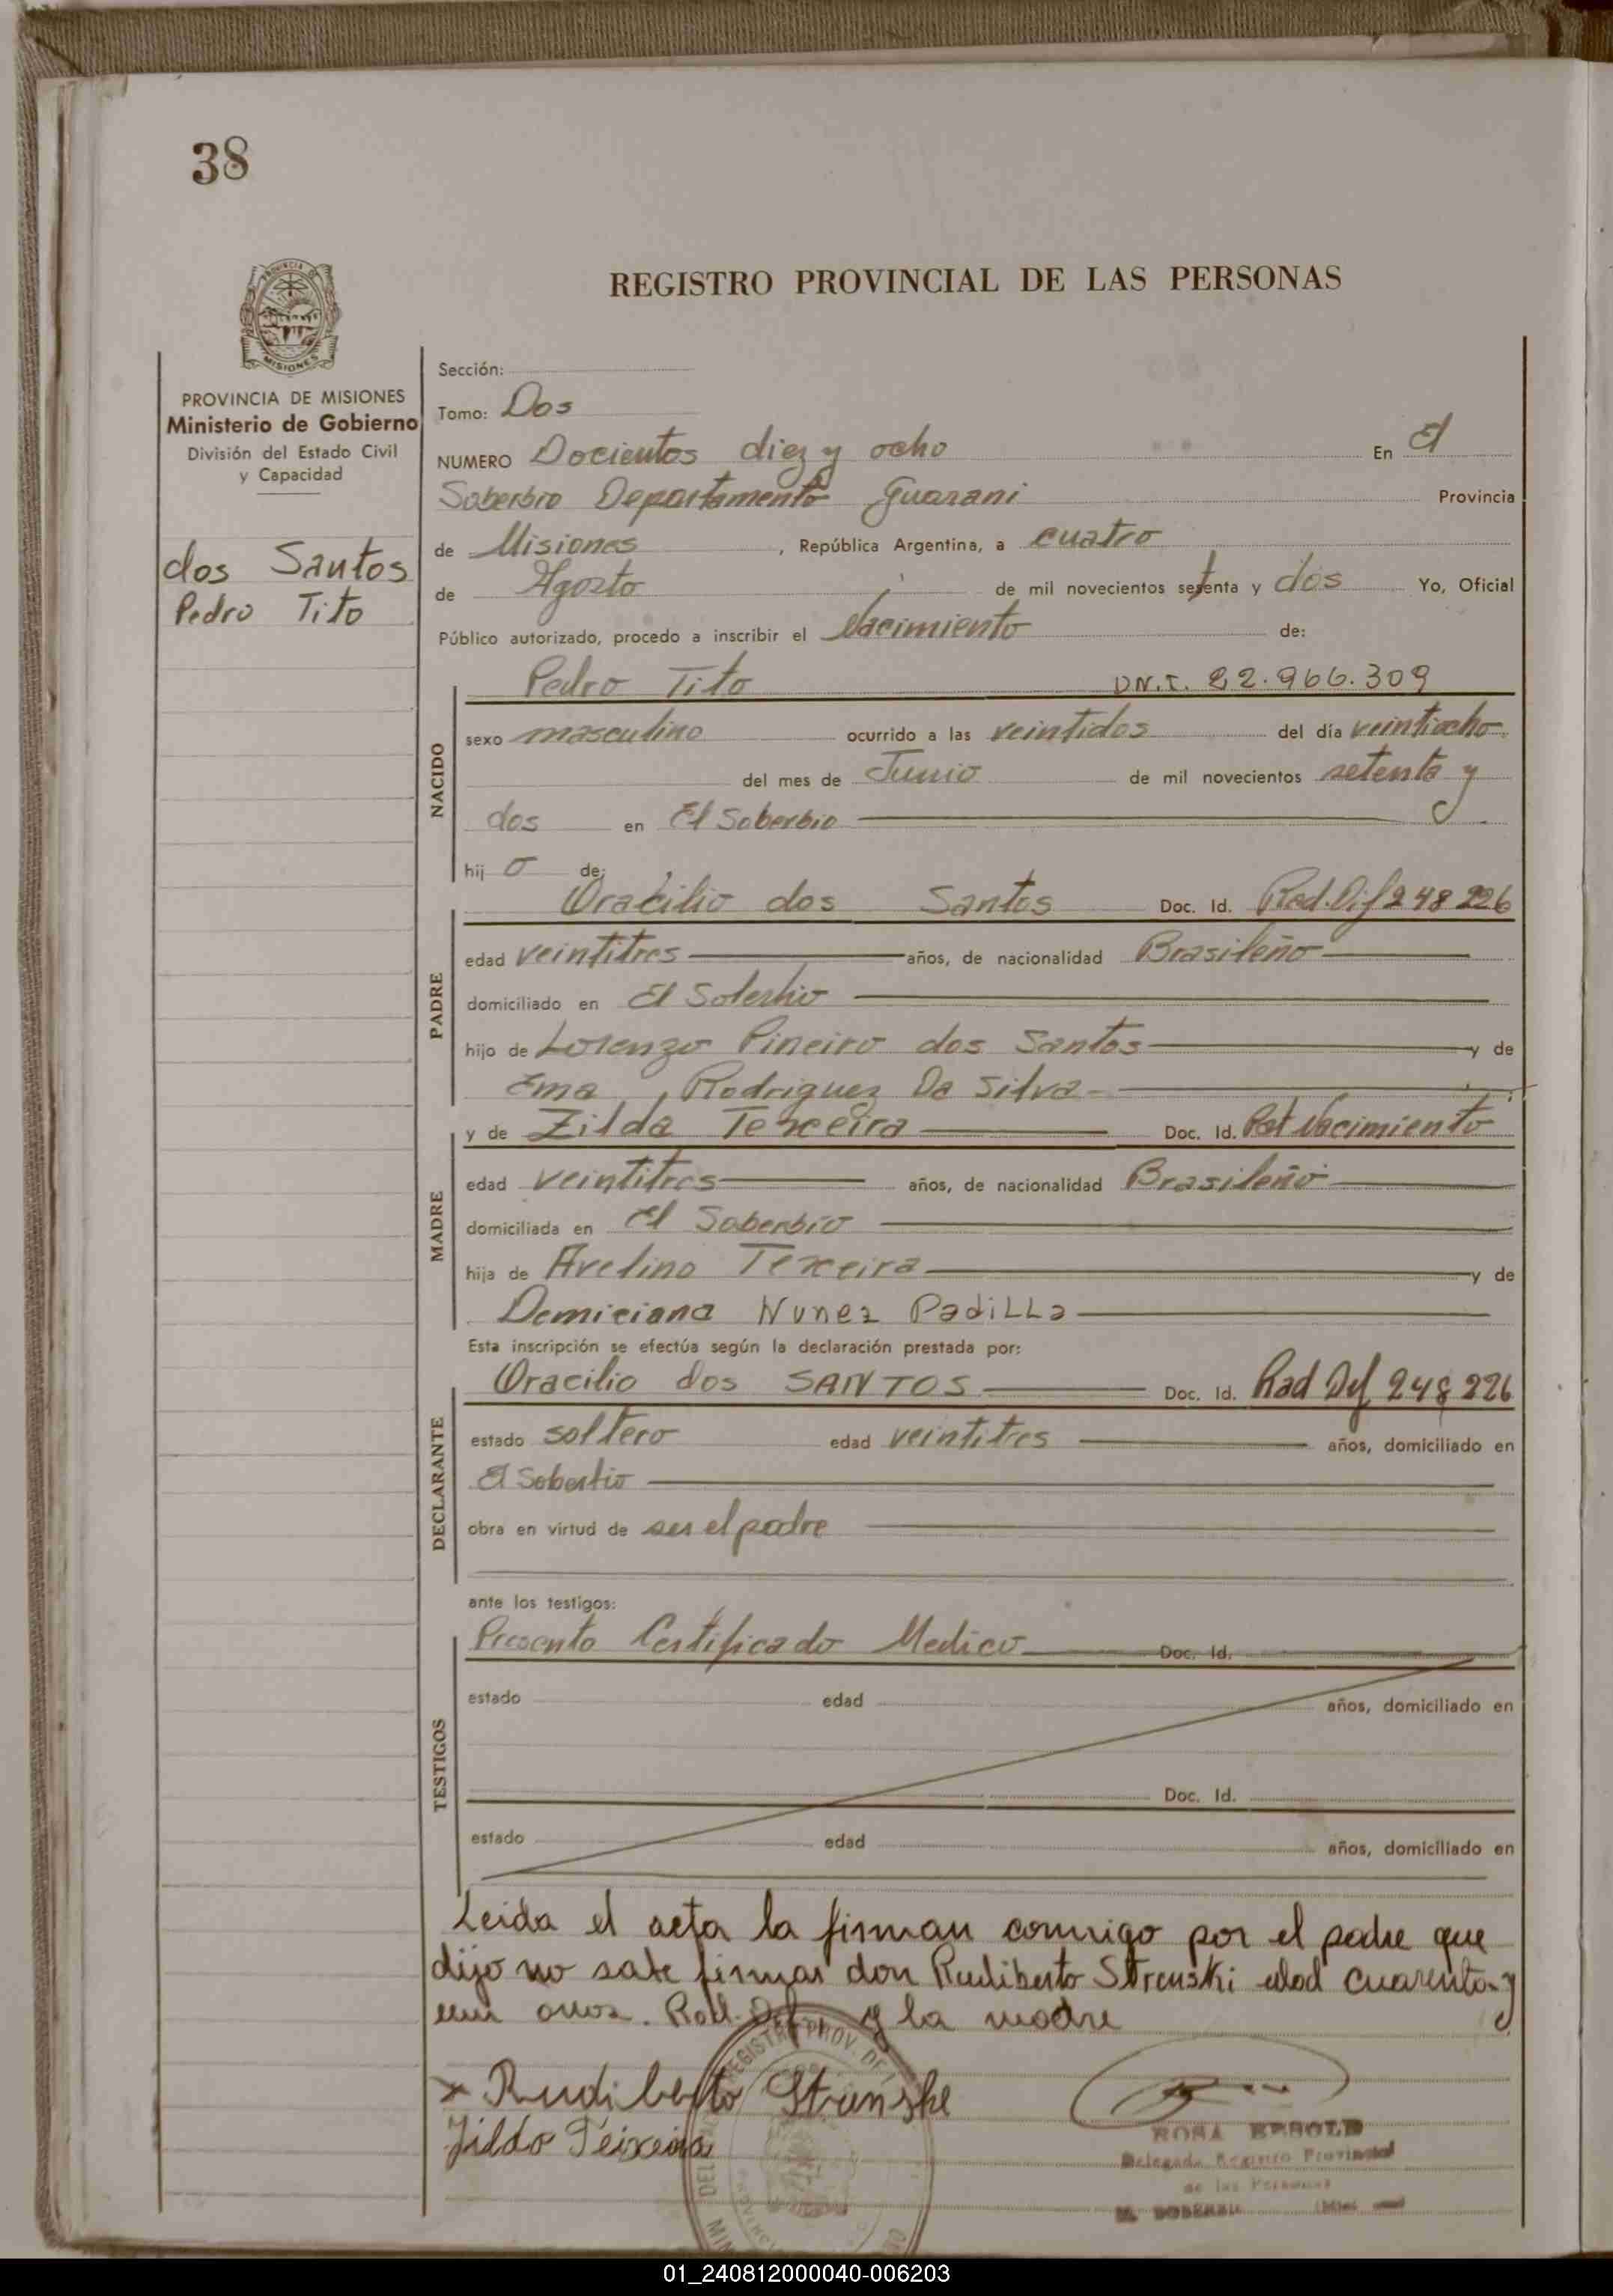 38
PROVINCIA DE
MISIONES
REGISTRO PROVINCIAL DE LAS PERSONAS
PROVINCIA DE MISIONES
Ministerio de Gobierno
División del Estado Civil
y Capacidad
dos Santos
Pedro Tito
Sección:
Tomo: Dos
NUMERO Docientos diez y ocho En El
Soberbio Departamento Guarani Provincia
de Misiones , República Argentina, a cuatro
de Agosto de mil novecientos setenta y dos Yo, Oficial
Público autorizado, procedo a inscribir el Nacimiento de:
Pedro Tito D.N.I. 22.966.309
NACIDO
sexo masculino ocurrido a las veintidos del día veintiocho
del mes de Junio de mil novecientos setenta y
dos en El Soberbio
hij o de:
PADRE
Oracilio dos Santos Doc. Id. Rad. Dif 248 226
edad veintitres años, de nacionalidad Brasileño
domiciliado en El Soberbio
hijo de Lorenzo Pineiro dos Santos y de
Ema Rodriguez Da Silva
MADRE
y de Zilda Texeeira Doc. Id. Part Nacimiento
edad veintitres años, de nacionalidad Brasileño
domiciliada en El Soberbio
hija de Avelino Texeira y de
Demiciana Nunez Padilla
Esta inscripción se efectúa según la declaración prestada por:
DECLARANTE
Oracilio dos SANTOS Doc. Id. Rad Def 248 226
estado soltero edad veintitres años, domiciliado en
El Soberbio
obra en virtud de ser el padre
ante los testigos:
TESTIGOS
Presento Certificado Medico Doc. Id.
estado edad años, domiciliado en
Doc. Id.
estado edad años, domiciliado en
Leida el acta la firman conmigo por el padre que
dijo no sabe firmar don Rudiberto Strenski edad cuarenta y
un años. Rad. Def y la madre
x Rudiberto Strenske
Zilda Teixeira
REGISTRO PROV. DE L
ROSA BEBOLD
Delegada Registro Provincial
de las Personas
EL SOBERBIO
01_240812000040-006203